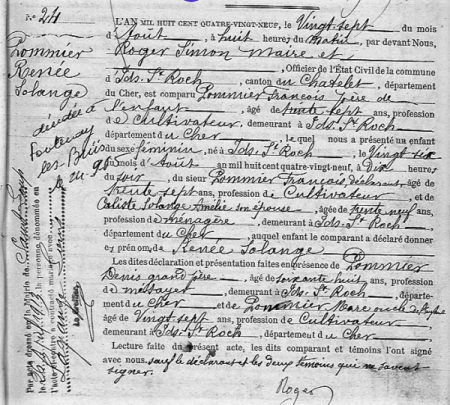 N° 24
Pommier
Renée
Solange
décédée à
Fontenay
les-Bois
L'AN MIL HUIT CENT QUATRE-VINGT-NEUF, le Vingt sept du mois
d'Août, à huit heures du matin, par devant Nous,
Roger Simon Maire et
, Officier de l'État Civil de la commune
d'Ids-St-Roch, canton du Chatelet, département
du Cher, est comparu Pommier François père de
l'enfant, âgé de trente sept ans, profession
de Cultivateur, demeurant à Ids-St-Roch
département du Cher, lequel nous a présenté un enfant
du sexe féminin, né à Ids-St-Roch, le Vingt six
du mois d'Août an mil huit cent quatre-vingt-neuf, à Dix heures
du soir, du sieur Pommier François, déclarant, âgé de
trente sept ans, profession de Cultivateur, et de
Solange Amélie son épouse, âgée de trente neuf ans,
profession de ménagère, demeurant à Ids-St-Roch,
département du Cher, auquel enfant le comparant a déclaré donner
les prénoms de Renée Solange
Les dites déclaration et présentation faites en présence de Pommier
Denis grand père, âgé de soixante huit ans, profession
de métayer, demeurant à Ids-St-Roch, départe-
ment du Cher et de Pommier Marc oncle
âgé de Vingt-sept ans, profession de Cultivateur
demeurant à Ids-St-Roch, département du Cher
Lecture faite du présent acte, les dits comparant et témoins l'ont signé
avec nous, sauf le déclarant et les deux témoins qui ne savent
signer.
Roger